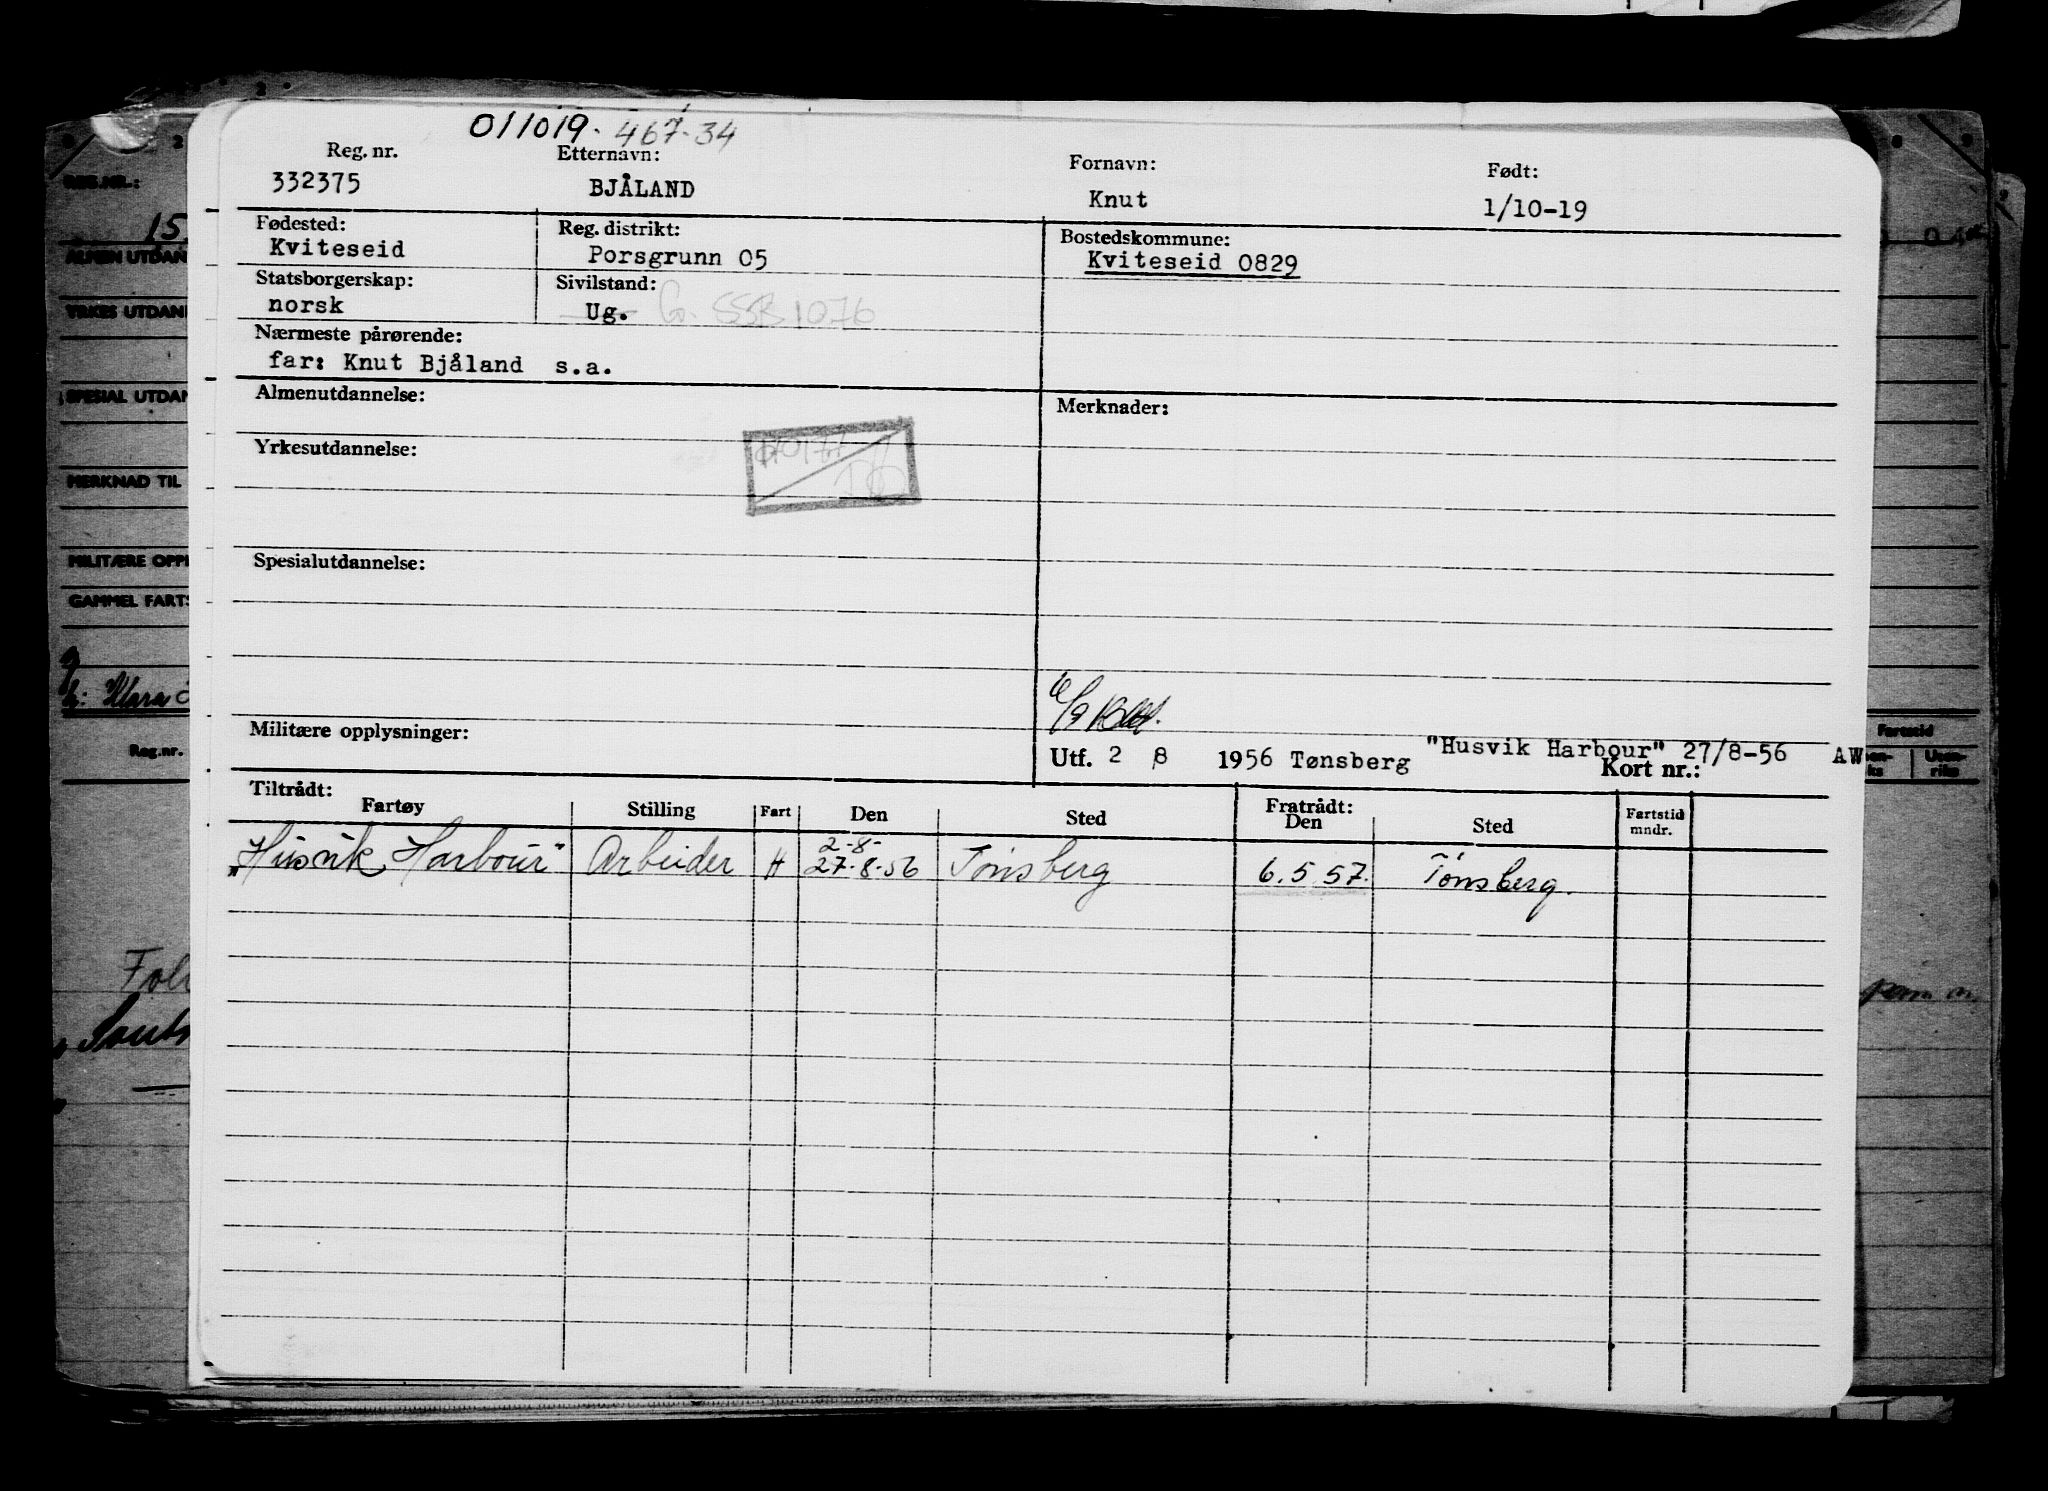 011019. 467-34
Reg. nr. Etternavn: Fornavn: Født:
332375 BJÅLAND Knut 1/10-19
Fødested: Reg. distrikt: Bostedskommune:
Kviteseid Porsgrunn 05 Kviteseid 0829
Statsborgerskap: Sivilstand:
norsk Ug. G. SSB 1076
Nærmeste pårørende:
far: Knut Bjåland s.a.
Almenutdannelse: Merknader:
Yrkesutdannelse:
Spesialutdannelse:
Militære opplysninger:
Utf. 2 8 1956 Tønsberg "Husvik Harbour" 27/8-56 AW
Kort nr.:
Tiltrådt: Fratrådt:
Fartøy Stilling Fart Den Sted Den Sted Fartstid mndr.
2-8-
"Husvik Harbour" Arbeider H 27-8-56 Tønsberg 6.5 57. Tønsberg.
REG.NR.:
15.
ALMEN UTDAN
YRKES UTDAN
SPESIAL UTDAN
MERKNAD TIL
MILITÆRE OPPL
GAMMEL FARTS
g
h: Klara
Reg.nr.
Fartstid
Uten-
riks